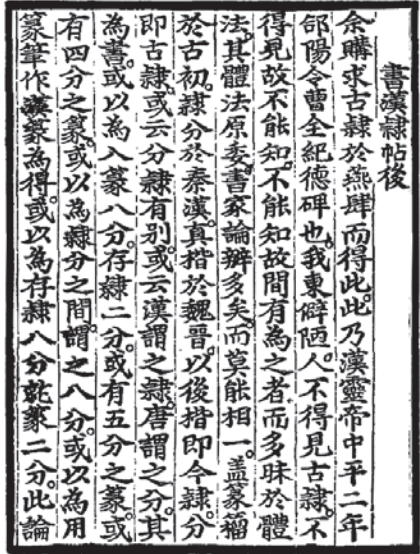 書漢隷帖後
余購求古隷於燕肆而得此此乃漢靈帝中平二年
郃陽令曹全紀德碑也我東僻陋人不得見古隷不
得見故不能知不能知故間有為之者而多昧於體
法其體法原委書家論辨多矣而莫能相一盖篆籕
於古初隷分於秦漢真楷於魏晋以後楷即今隷分
即古隷或云分隷有别或云漢謂之隷唐謂之分其
為書或以為入篆八分存隷二分或有五分之篆或
有四分之篆或以為隷分之間謂之八分或以為用
篆筆作漢篆為得或以為存隷八分就篆二分此論